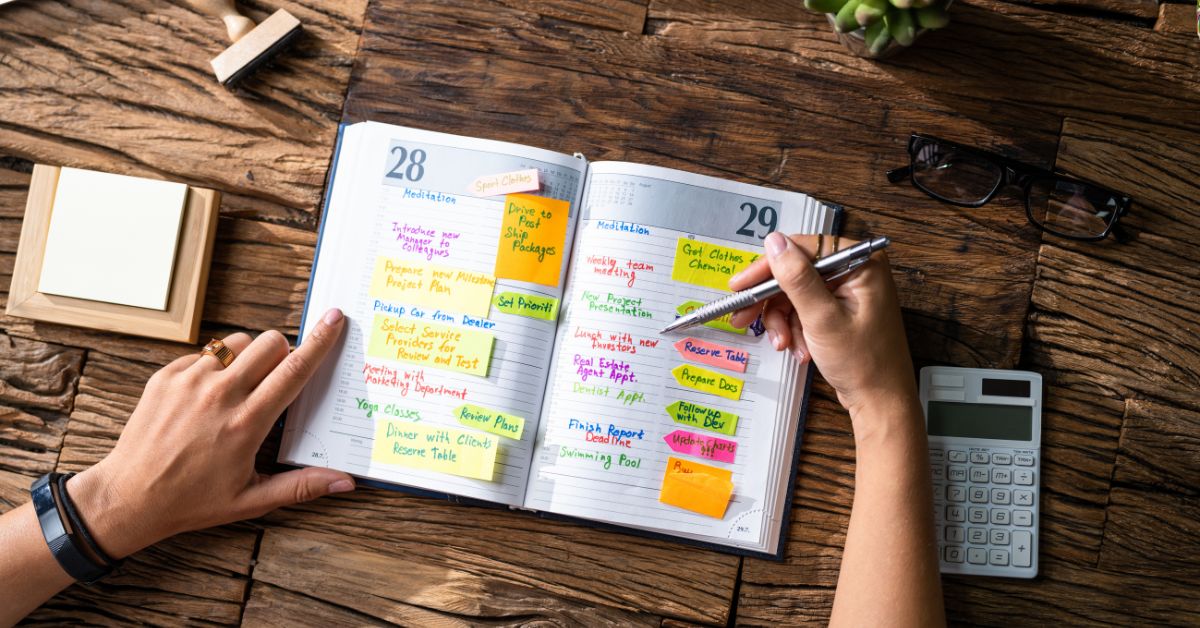 28
Sport Clothes
Meditation
Drive to
Post
Ship
Packages
Introduce new
Manager to
colleagues
Prepare new Milestone
Project Plan
Set Prioriti
Pickup Car from Dealer
Select Service
Providers for
Review and Test
Meeting with
Marketing Department
Yoga Classes
Review Plans
Dinner with Clients
Reserve Table
29
August
Meditation
Get Clothes
Chemical
Weekly team
meeting
New Project
Presentation
Lunch with new
Investors
Reserve Table
Real Estate
Agent Appt.
Prepare Docs
Dentist Appt.
Followup
with Dev
Finish Report
Deadline
Update Charts
Swimming Pool